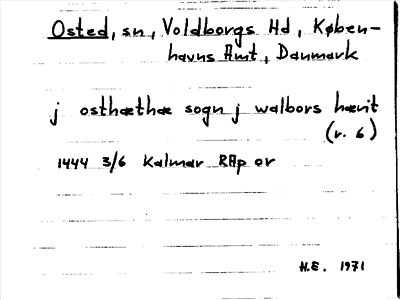 Osted, sn, Voldborgs Hd, Køben-
havns Amt, Danmark
j osthæthæ sogn j walbors hærit
(r. 6)
1444 3/6 Kalmar RAp or
H.E. 1971